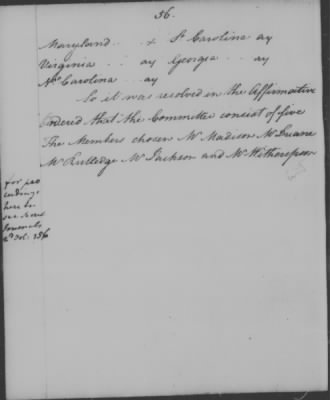 56.
Maryland . . + So Carolina ay
Virginia . . ay Georgia . . ay
No Carolina . . ay
So it was resolved in the Affirmative
Ordered that the Committee consist of five
The Members chosen Mr Madison Mr Duane
Mr Rutledge Mr Jackson and Mr Witherspoon
for pro
ceedings
here on
see
Journals
Vol. 156